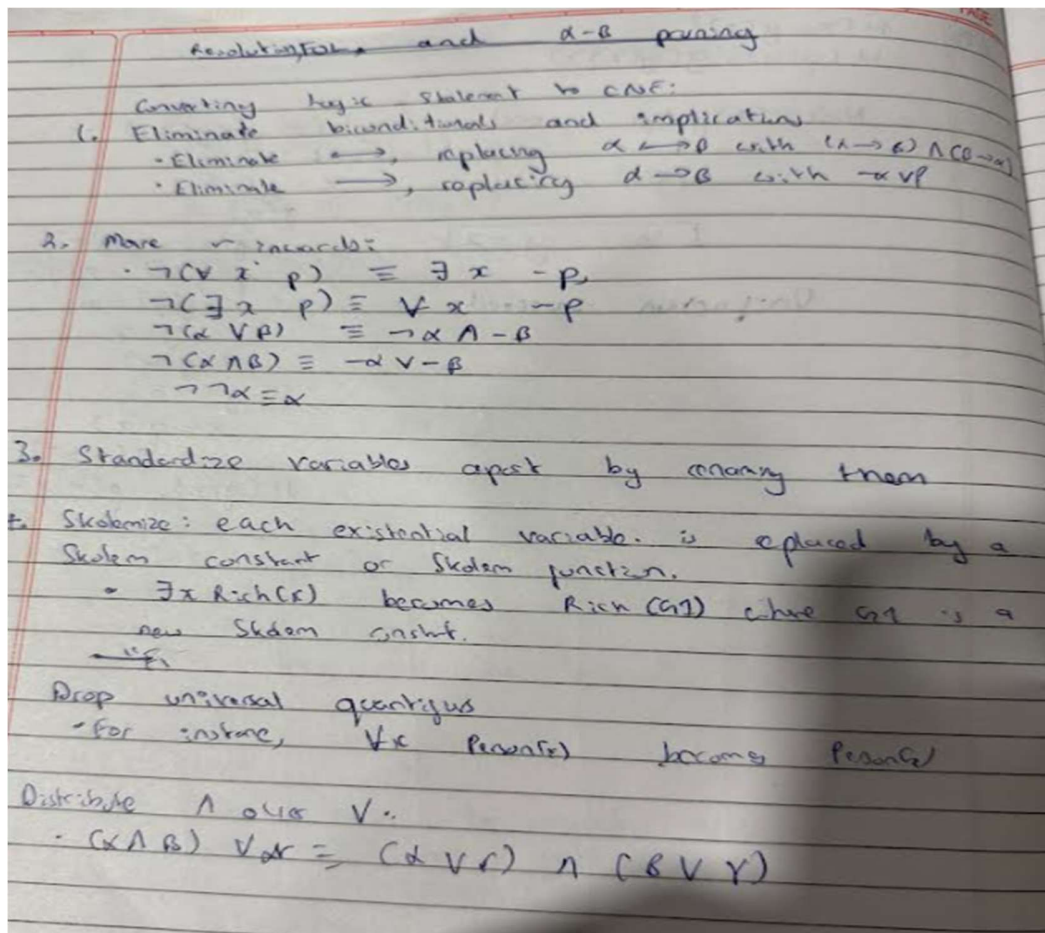 Resolution, FOL, and α-β pruning
Converting logic statement to CNF:
1. Eliminate biconditionals and implications
· Eliminate ↔, replacing α ↔ β with (α → β) ∧ (β → α)
· Eliminate →, replacing α → β with ¬α ∨ β
2. Move ¬ inwards:
· ¬(∀ x p) ≡ ∃ x ¬p,
¬(∃ x p) ≡ ∀ x ¬p
¬(α ∨ β) ≡ ¬α ∧ ¬β
¬(α ∧ β) ≡ ¬α ∨ ¬β
¬¬α ≡ α
3. Standardize variables apart by renaming them
Skolemize: each existential variable. is replaced by a
Skolem constant or Skolem function.
• ∃x Rich(x) becomes Rich (G1) where G1 is a
new Skolem constant.
Drop universal quantifiers
- For instance, ∀x Person(x) becomes Person(x)
Distribute ∧ over ∨:
· (α ∧ β) ∨ γ ≡ (α ∨ γ) ∧ (β ∨ γ)